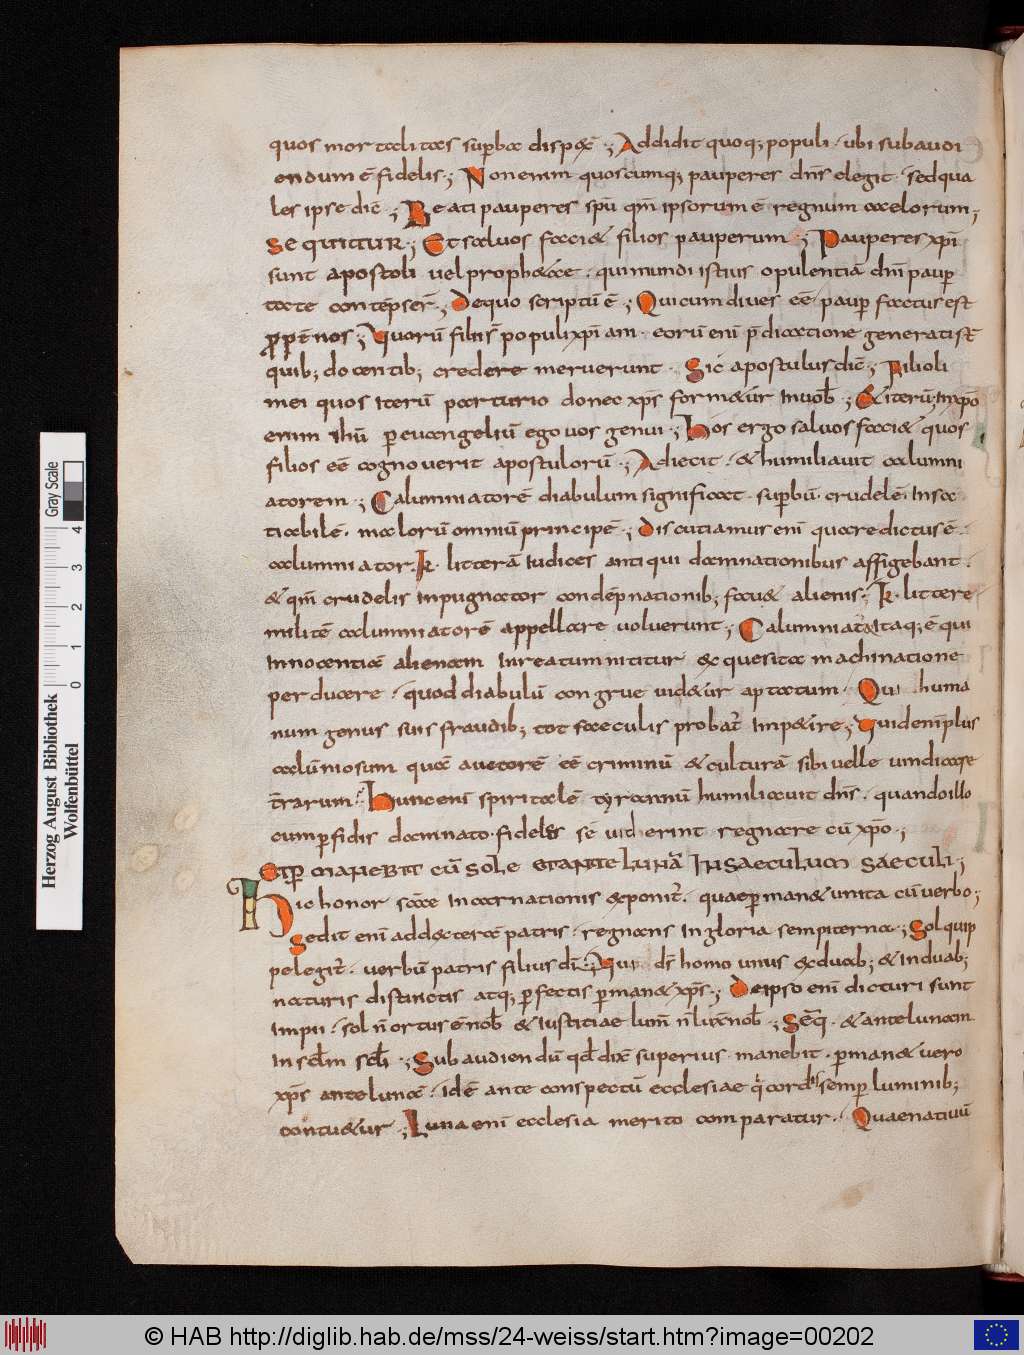 quos mortalitas sup̄ba dispex̄ ·; Addidit quoq; populi · ubi subaudi
endum ē fidelis ·; Non enim quoscumq; pauperes dn̄s elegit · sed qua
les ipse dic̄ ·; Beati pauperes sp̄u qm̄ ipsorum ē regnum caelorum ·;
SEQUITUR ·; Et salvos faci& filios pauperum ·; Pauperes xp̄i
sunt apostoli vel proph&ae · qui mundi istius opulentiā dn̄i paup̄
tate contēpser̄ ·; De quo scriptū ē ·; Qui cum dives eē paup̄ factus est
nos ·; Quorū filii s̄ populi xp̄iani · eorū enī p̄dicatione generati st̄
quib; docentib; credere meruerunt · Sic apostulus dic̄ ·; Filioli
mei quos iterū parturio donec xp̄s form&ur in vob̄ ·; & iterū · in xp̄o
enim ihū p̄ evangeliū ego vos genui ·; Hos ergo salvos faci& quos
filios eē cognoverit apostulorū ·; Adiecit · & humiliavit calumni
atorem ·; Calumniatorē diabulum significat · sup̄bū · crudelē · insa
tiabilē · malorū omniū principē ·; Discutiamus enī quare dictus ē
calumniator · K · litterā iudices antiqui damnationibus affigebant ·
& qm̄ crudelis inpugnator condēpnationib; favi& alienis ·; K · littere
militē calumniatorē appellare voluerunt ·; Calumniator itaq; ē qui
innocentiā alienam in reatum nititur exquesita machinatione
perducere · quod diabulū congrue vid&ur aptatum · Qui huma
num genus suis fraudib; tot saeculis probat̄ imp&ire ·; Quid enī plus
calūniosum quā auctorē eē criminū & culturā sibi velle vindicare
t̄rarum · Hunc enī spiritalē tyrannū humiliavit dn̄s · quando illo
cum p̄fidis damnato · fideles se viderint regnare cū xp̄o ·;
ET P̄MANEBIT CŪ SOLE ET ANTE LUNĀ IN SAECULUM SAECULI ·;
Hic honor sc̄ae incarnationis exponit̄ · quae p̄man& unita cū verbo ·;
Sedit enī ad dexterā patris · regnans in gloria sempiterna ·; Sol quip
pe legit̄ · verbū patris filius dī · Qui ds̄ homo unus ex duab; & in duab;
naturis distinctis atq; p̄fectis p̄man& xp̄s ·; De ipso enī dicturi sunt
impii · sol n̄ ortus ē nob̄ & iustitiae lum̄ n̄ lux̄ nob̄ ·; Seq̄ · & ante lunam
in sclm̄ scl̄i ·; Subaudiendū qd̄ dix̄ superius · manebit · p̄man& vero
xp̄s ante lunā · idē ante conspectū ecclesiae semp̄ luminib;
contu&ur ·; Luna enī ecclesia merito comparatur · Quae nativū
Herzog August Bibliothek
Wolfenbüttel
Gray Scale
0 1 2 3 4
© HAB http://diglib.hab.de/mss/24-weiss/start.htm?image=00202